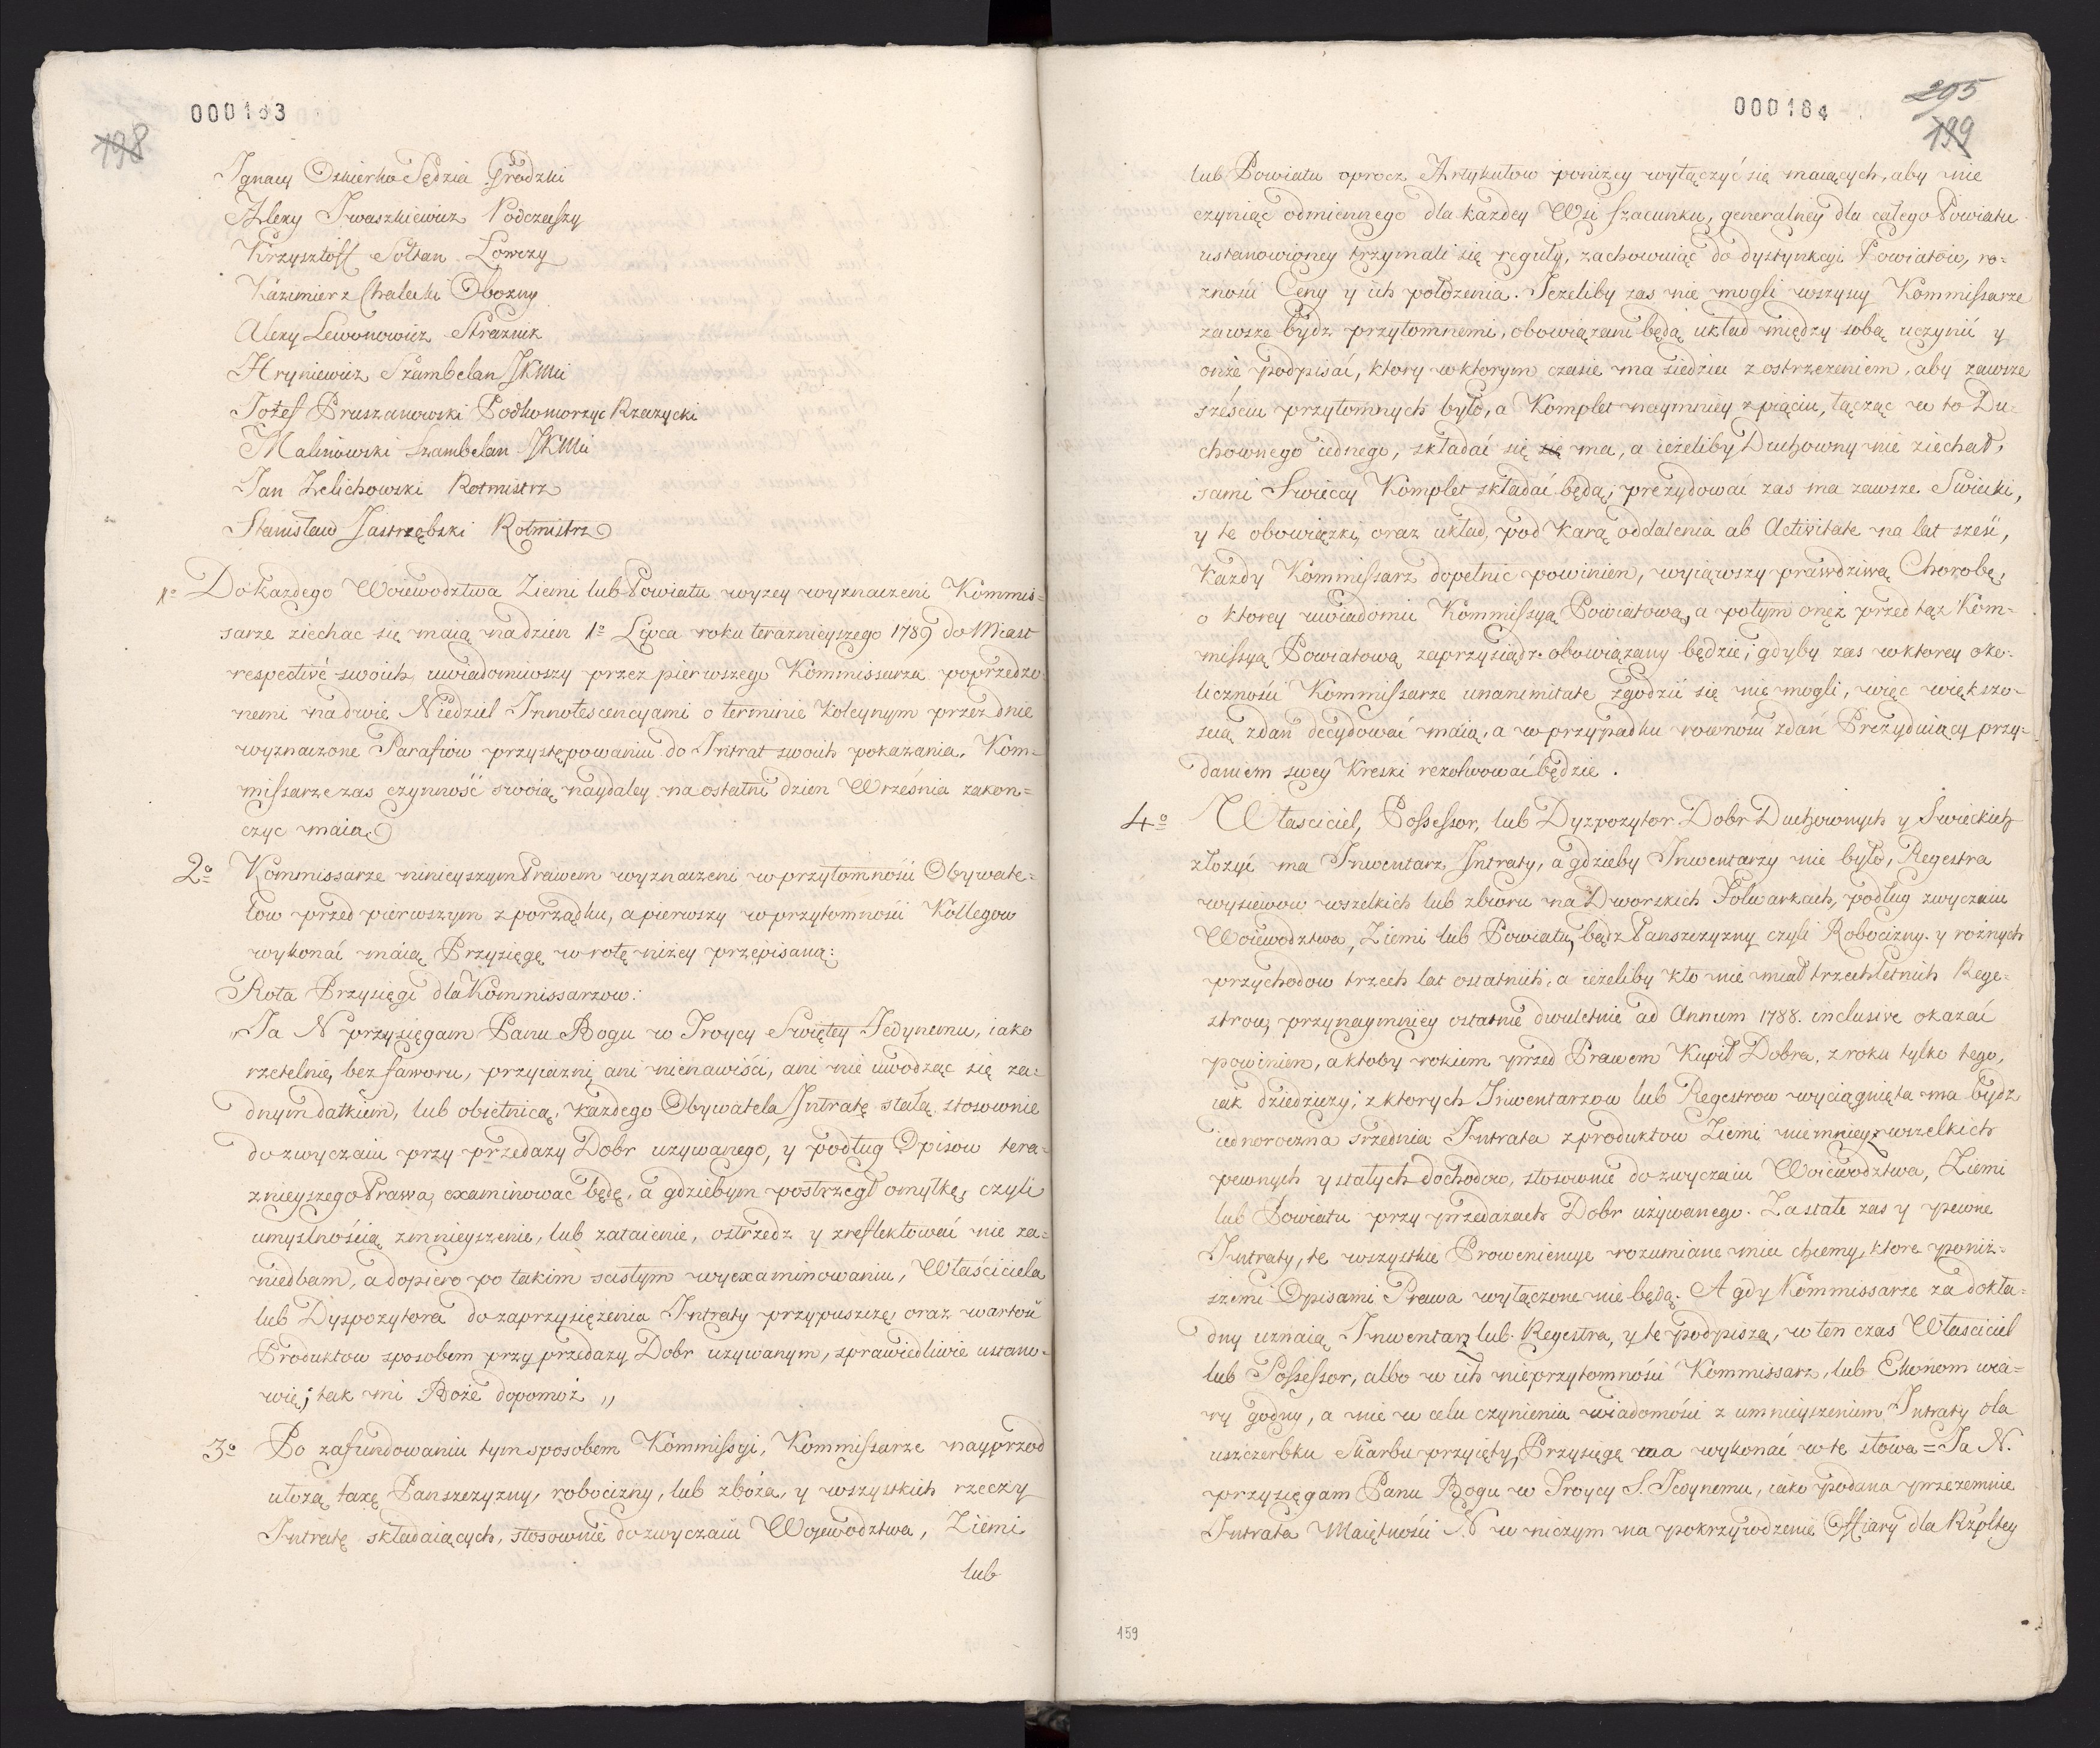 000183
198
Ignacy Oskierko Sędzia Grodzki
Alexy Iwaszkiewicz Podczaszy
Krzysztoff Sołtan Łowczy
Kazimierz Chalecki Obozny
Alexy Lewonowicz Straznik
Hryniewicz Szambelan JKMci
Jozef Pruszanowski Podkomorzyc Rzeczycki
Malinowski Szambelan JKMci
Jan Zelichowski Rotmistrz
Stanisław Jastrzębski Rotmistrz
1º Do każdego Woiewodztwa Ziemi lub Powiatu wyzey wyznaczeni Kommis=
sarze ziechac się maią na dzien 1º Lipca roku teraznieyszego 1789 do Miast
respectivè swoich, uwiadomiwszy przez pierwszego Kommissarza poprzedzo=
nemi na dwie Niedziel Innotescencyami o terminie koleynym przez dnie
wyznaczone Parafiow przystępowaniu do Intrat swoich pokazania. Kom=
missarze zas czynność swoią naydaley na ostatni dzien Września zakon=
czyc maią
2º Kommissarze ninieyszym Prawem wyznaczeni w przytomności Obywate=
low przed pierwszym z porządku, a pierwszy w przytomności Kollegow
wykonać maią Przysięgę w rotę niżey przepisaną:
Rota Przysięgi dla Kommissarzow:
„Ja N przysięgam Panu Bogu w Troycy Swiętey Jedynemu, iako
rzetelnie, bez faworu, przyiazni ani nienawiści, ani nie uwodząc się za=
dnym datkiem, lub obietnicą, każdego Obywatela Intratę stałą stosownie
do zwyczaiu przy przedazy Dobr uzywanego, y podług Opisow tera=
znieyszego Prawa, examinowac będę, a gdziebym postrzegł omyłkę, czyli
umyslnością zmnieyszenie, lub zataienie, ostrzedz y zreflektować nie za=
niedbam, a dopiero po takim scisłym wyexaminowaniu, Właściciela
lub Dyspozytora do zaprzysiężenia Intraty przypuszczę, oraz wartość
Produktow sposobem przy przedazy Dobr uzywanym, sprawiedliwie ustano=
wię; tak mi Boże dopomoż „
3º Po zafundowaniu tym sposobem Kommissyi, Kommissarze nayprzod
ułożą taxę Panszczyzny, robocizny, lub zboża, y wszystkich rzeczy
Intratę składaiących, stosownie do zwyczaiu Woiewodztwa, Ziemi
lub
000184
295
199
lub Powiatu oprocz Artykułow poniżey wyłączyć się maiących, aby nie
czyniąc odmiennego dla każdey Wsi szacunku, generalney dla całego Powiatu
ustanowioney trzymali się reguły, zachowuiąc do dystynkcyi Powiatow, ro=
zność Ceny y ich położenia. Jeżeliby zas nie mogli wszyscy Kommissarze
zawsze bydz przytomnemi, obowiązani będą układ między sobą uczynić y
onże podpisać, ktory w ktorym czasie ma siedziec z ostrzeżeniem, aby zawsze
sześciu przytomnych było, a Komplet naymniey z pięciu, łącząc w to Du=
chownego iednego, składać się się ma, a ieżeliby Duchowny nie ziechał,
sami Swieccy Komplet składać będą; prezydować zas ma zawsze Swiecki,
y te obowiązki, oraz układ, pod karą oddalenia ab Activitate na lat sześć,
każdy Kommissarz dopełnic powinien, wyiąwszy prawdziwą Chorobę,
o ktorey uwiadomić Kommissyą Powiatową, a potym onęż przed tąż Kom=
missyą Powiatową zaprzysiądz obowiązany będzie; gdyby zas w ktorey oko=
liczności Kommissarze unanimitate zgodzić się nie mogli, więc większo=
scią zdań decydować maią, a w przypadku rowności zdań Prezyduiący przy=
daniem swey Kreski rezolwować będzie.
4º Własciciel, Possessor, lub Dyzpozytor Dobr Duchownych y Swieckich
złożyć ma Inwentarz Intraty, a gdzieby Inwentarzy nie było, Regestra
wysiewow wszelkich lub zbioru na Dworskich Folwarkach, podług zwyczaiu
Woiewodztwa, Ziemi lub Powiatu, bądz Panszczyzny czyli Robocizny y rożnych
przychodow trzech lat ostatnich, a ieżeliby kto nie miał trzechletnich Rege=
strow, przynaymniey ostatnie dwuletnie ad Annum 1788. inclusive okazać
powinien, a ktoby rokiem przed Prawem Kupił Dobra, z roku tylko tego,
iak dziedziczy; z ktorych Inwentarzow lub Regestrow wyciągnięta ma bydz
iednoroczna srzednia Intrata z produktow Ziemi niemniey z wszelkich
pewnych y stałych dochodow, stosownie do zwyczaiu Woiewodztwa, Ziemi
lub Powiatu przy przedażach Dobr używanego. Za stałe zas y pewne
Intraty, te wszystkie Prowenciencye rozumiane miec chcemy, ktore poniż=
szemi Opisami Prawa wyłączone nie będą. A gdy Kommissarze za dokła=
dny uznaią Inwentarz lub Regestra, y te podpiszą, w ten czas Własciciel
lub Possessor, albo w ich nieprzytomności Kommissarz, lub Ekonom wia=
ry godny, a nie w celu czynienia wiadomości z umnieyszeniem Intraty dla
uszczerbku Skarbu przyięty, Przysięgę ma wykonać w te słowa = Ja N.
przysięgam Panu Bogu w Troycy S. Jedynemu, iako podana przezemnie
Intrata Maiętności N. w niczym na pokrzywdzenie Offiary dla Rzpltey
159